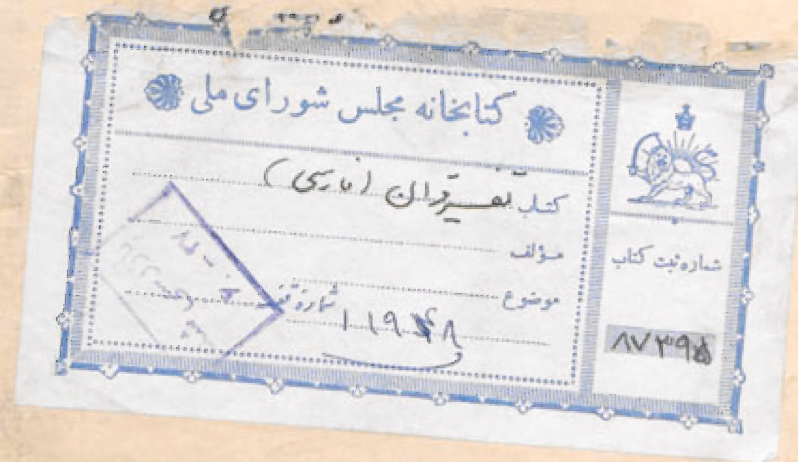 کتابخانه مجلس شورای ملی
کتاب تفسیر قرآن (فارسی)
مؤلف
موضوع
شماره قفسه
۱۱۹۴۸
شماره ثبت کتاب
۸۷۳۹۵